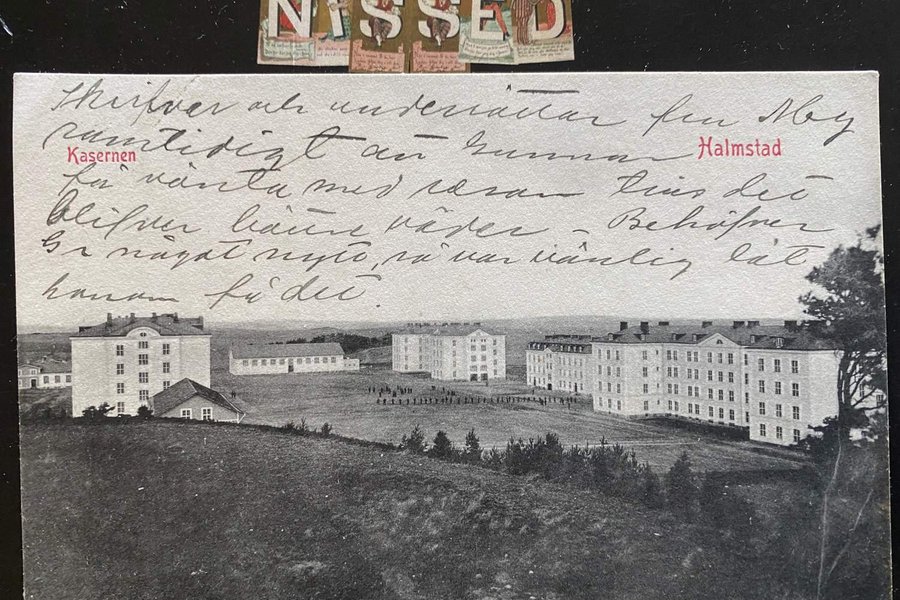 NISSED
Skrifver och underrättar fru Moy
samtidigt att Gunnar
Kasernen
Halmstad
får vänta med resan tills det
blifver bättre väder – Behöfver
Gr något nytt, så var vänlig låt
honom få det.